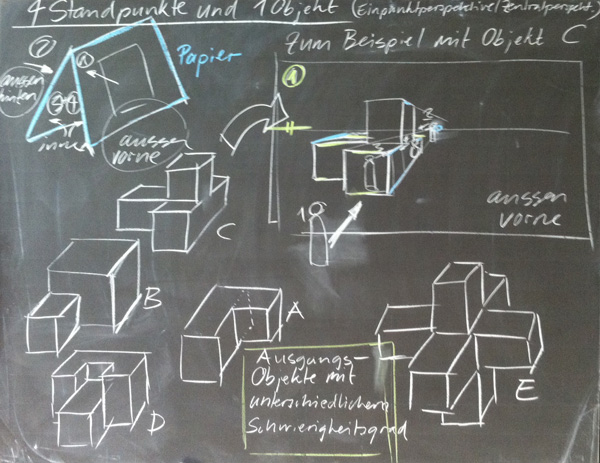 4 Standpunkte und 1 Objekt (Einpunktperspektive/Zentralperspekt.)
Zum Beispiel mit Objekt C
Papier
aussen
hinten
innen
aussen
vorne
1
aussen
vorne
1
C
B
A
D
E
Ausgangs-
Objekte mit
unterschiedlichem
Schwierigkeitsgrad